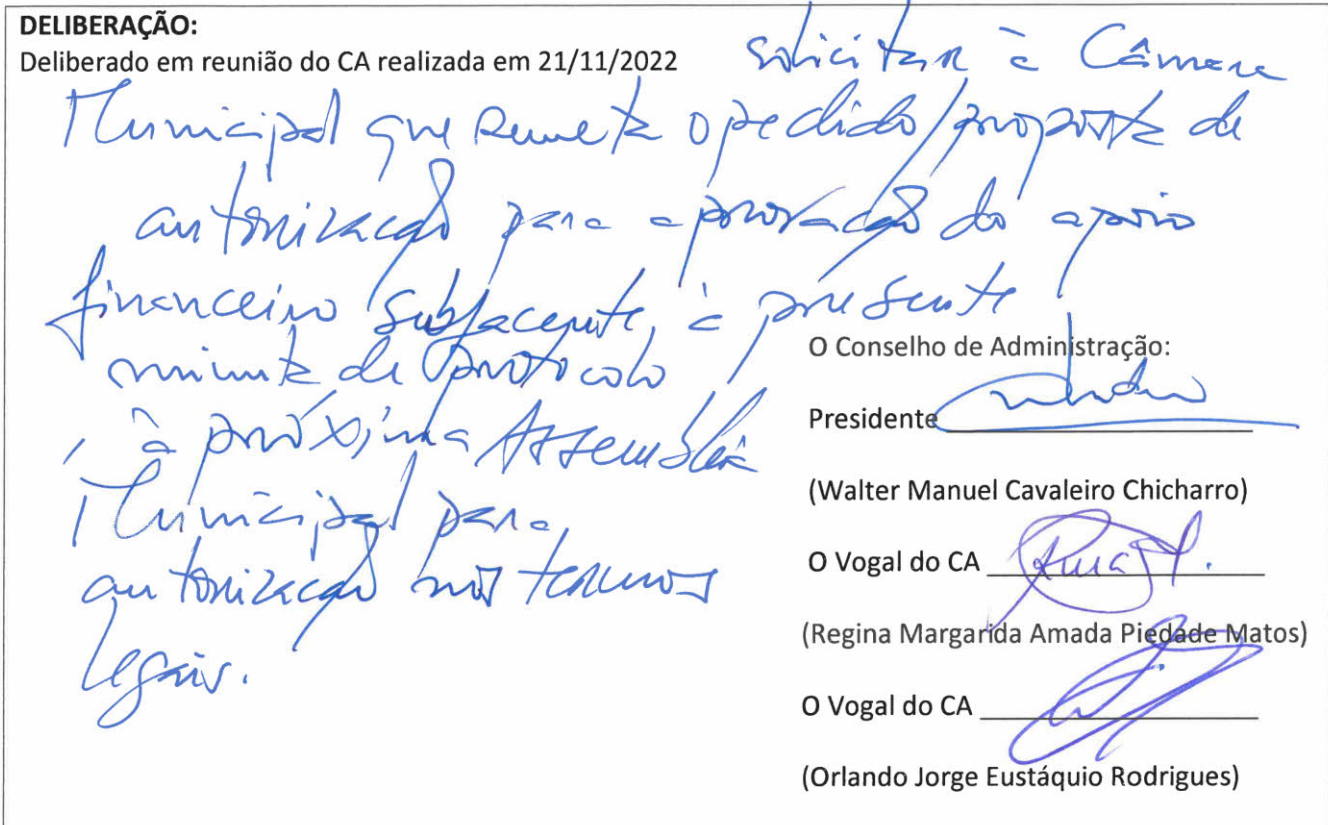 DELIBERAÇÃO:
Deliberado em reunião do CA realizada em 21/11/2022 solicitar à Câmara
Municipal que remeta o pedido/proposta de
autorização para aprovação do apoio
financeiro subjacente, à presente
minuta de protocolo
, à próxima Assembleia
Municipal para
autorização nos termos
legais.
O Conselho de Administração:
Presidente
(Walter Manuel Cavaleiro Chicharro)
O Vogal do CA
(Regina Margarida Amada Piedade Matos)
O Vogal do CA
(Orlando Jorge Eustáquio Rodrigues)